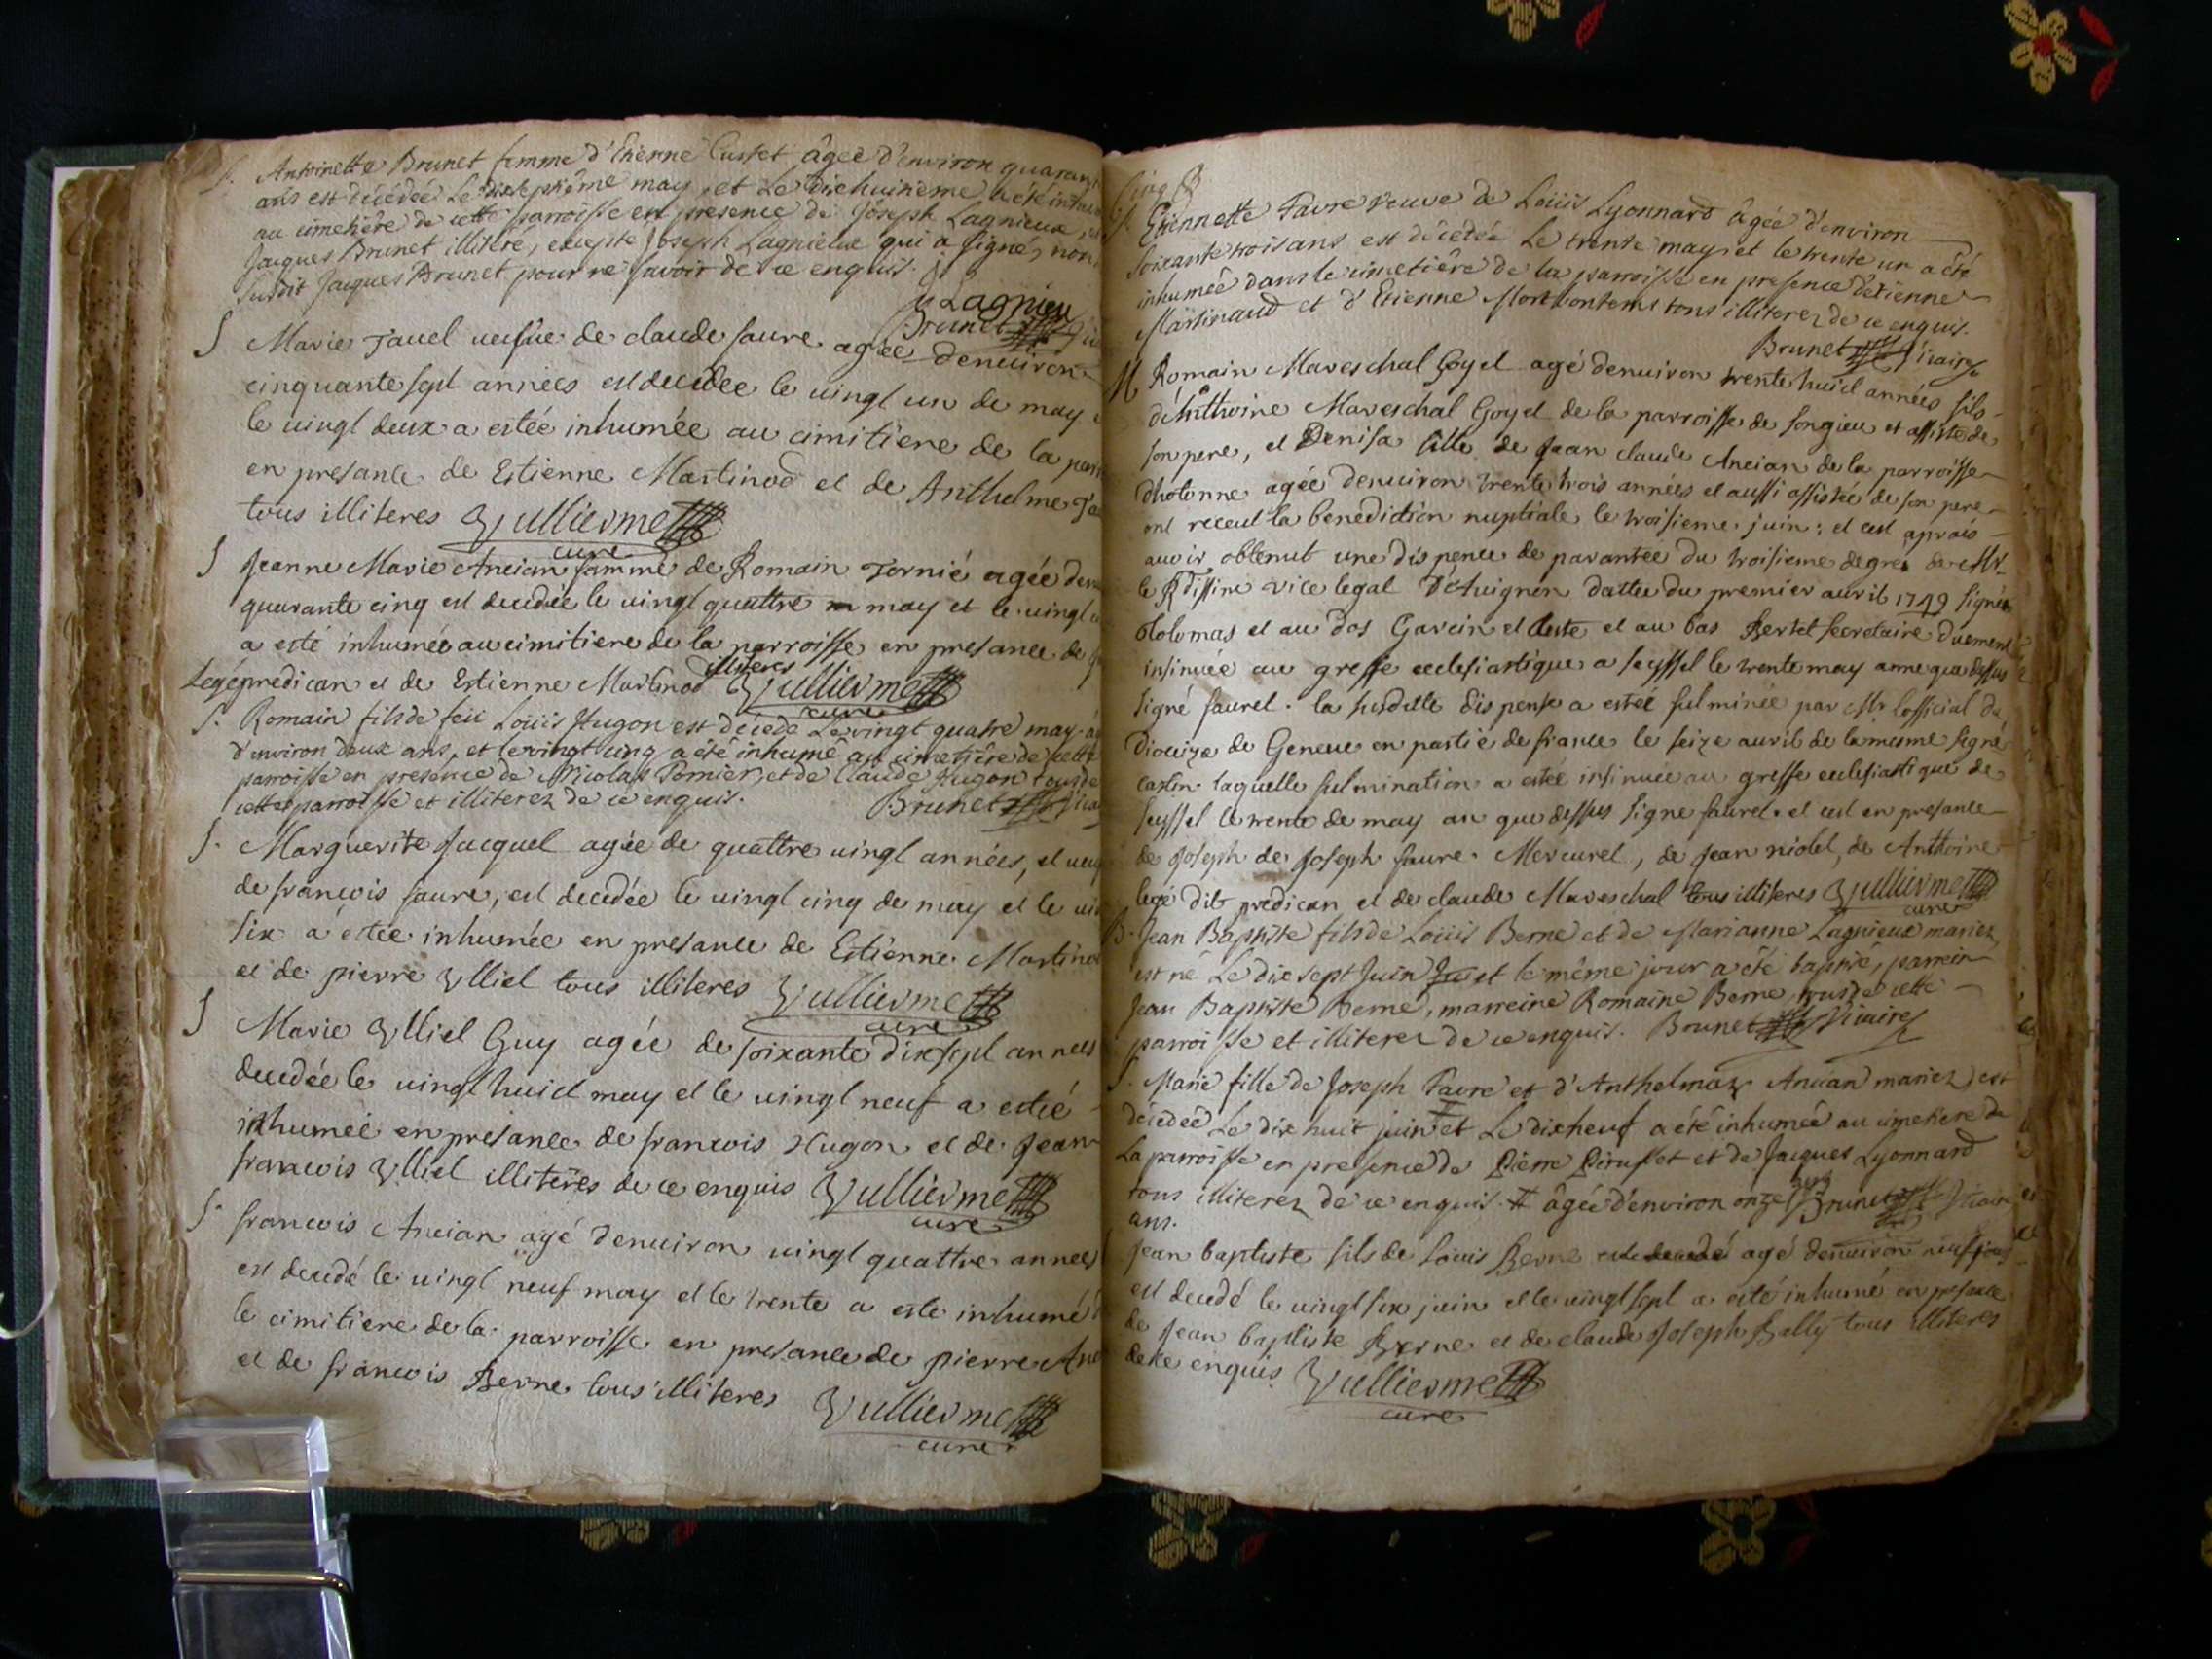 S. Antoinette Brunet femme d'Etienne Custet âgée d'environ quarante
ans est décédée Le dixseptiême may, et Le dixhuitieme a été inhumée
au cimetiére de cette parroisse en presence de Joseph Lagnieux
Jacques Brunet illiteré, excepte Joseph Lagnieux qui a signé, non
susdit Jacques Brunet pour ne savoir de ce enquis.
J Lagnieu
Brunet
S Marie Tavel vefue de claude faure agée denuiron
cinquante sept années est decedee le vingt un de may
le vingt deux a estée inhumée au cimitiere de la
en presance de Estienne Martinod et de Anthelme
tous illiteres Vulliermet
curé
S Jeanne Marie Ancian famme de Romain Tornié agée
quarante cinq est decedée le vingt quattre may et le vingt
a esté inhumée au cimitiere de la parroisse en presance de
Legé predican et de Estienne Martinod illiteres Vulliermet
curé
S. Romain fils de feü Loüis Hugon est décedé Le vingt quatre may
d'environ deux ans, et Le vingt cinq a été inhumé au cimetiére de cette
parroisse en presence de Nicolas Pornier, et de Claude Hugon tous de
cette parroisse et illiterez de ce enquis. Brunet
S. Marguerite Jacquet agée de quattre vingt années, et
de francois faure, est decedée le vingt cinq de may et le
six a estée inhumée en presance de Estienne Martinod
et de pierre Vlliel tous illiteres Vulliermet
curé
S Marie Vlliel Guy agée de soixante dixsept années
decedée le vingt huict may et le vingt neuf a esteé
inhumée en presance de francois Hugon et de Jean
francois Vlliel illiteres de ce enquis Vulliermet
curé
S. francois Ancian agé denuiron vingt quattre années
est decedé le vingt neuf may et le trente a este inhumé
le cimitiere de la parroisse en presance de pierre
et de francois Berne tous illiteres Vulliermet
curé
Etiennette Favre veuve de Loüis Lyonnard âgée d'environ
soixante trois ans est décédée Le trente may, et le trente un a été
inhumée dans le cimetiére de la parroisse en presence d'etienne
Martinaud et d'Etienne Mortcontems tous illiterez de ce enquis.
Brunet Vicaire
M Romain Mareschal Goyet agé denuiron trente huict années fils
d'Anthoine Mareschal Goyet de la parroisse de songieu et assisté de
son pere, et Denisa fille de Jean claude Ancian de la parroisse
dhotonne agée denuiron trente trois années et aussi assistée de son pere
ont receut la benediction nuptiale le troisieme juin: et cest aprais
auoir obtenut une dispence de parantée du troisieme degré de Mr
le Rdissime vice legat D'Auignon dattée du premier auril 1749 signée
Ololomas et au dos Garcin et Aeste et au bas Bertet secretaire duement
insinuée au greffe ecclesiastique a seyssel le trente may anne que dessus
signé faurel. la susditte dispense a estée fulminée par Mr lofficial du
Dioceze de Geneue en partie de france le seize auril de la mesme signé
carlin laquelle fulmination a estée insinuée au greffe ecclesiastique de
seyssel le trente de may an que dessus signe faurel. et cest en presance
de Joseph de Joseph faure. Mercurel, de Jean niolet, de Anthoine
legé dit predican et de claude Mareschal tous illiteres Vulliermet
curé
B. Jean Baptiste fils de Loüis Berne et de Marianne Lagnieux mariez
est né Le dix sept Juin et le même jour a été baptisé, parrein
Jean Baptiste Berne, marreine Romaine Berne, tous de cette
parroisse et illiterez de ce enquis. Brunet Vicaire
S. Marie fille de Joseph Favre et d'Anthelmaz Ancian mariez est
décédée Le dix huit juin et Le dixneuf a été inhumée au cimetiere de
La parroisse en presence de Pierre Piruflet et de Jacques Lyonnard
tous illiterez de ce enquis. # âgée d'environ onze Brunet Vicaire
ans.
Jean baptiste fils de Louis Berne est decedé agé denuiron neuf jours
est decedé le vingt six juin et le vingt sept a esté inhumé en presance
de Jean baptiste Berne et de claude Joseph Bally tous illiteres
de ce enquis Vulliermet
curé